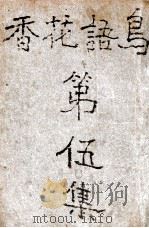 香花語鳥
第
伍
集